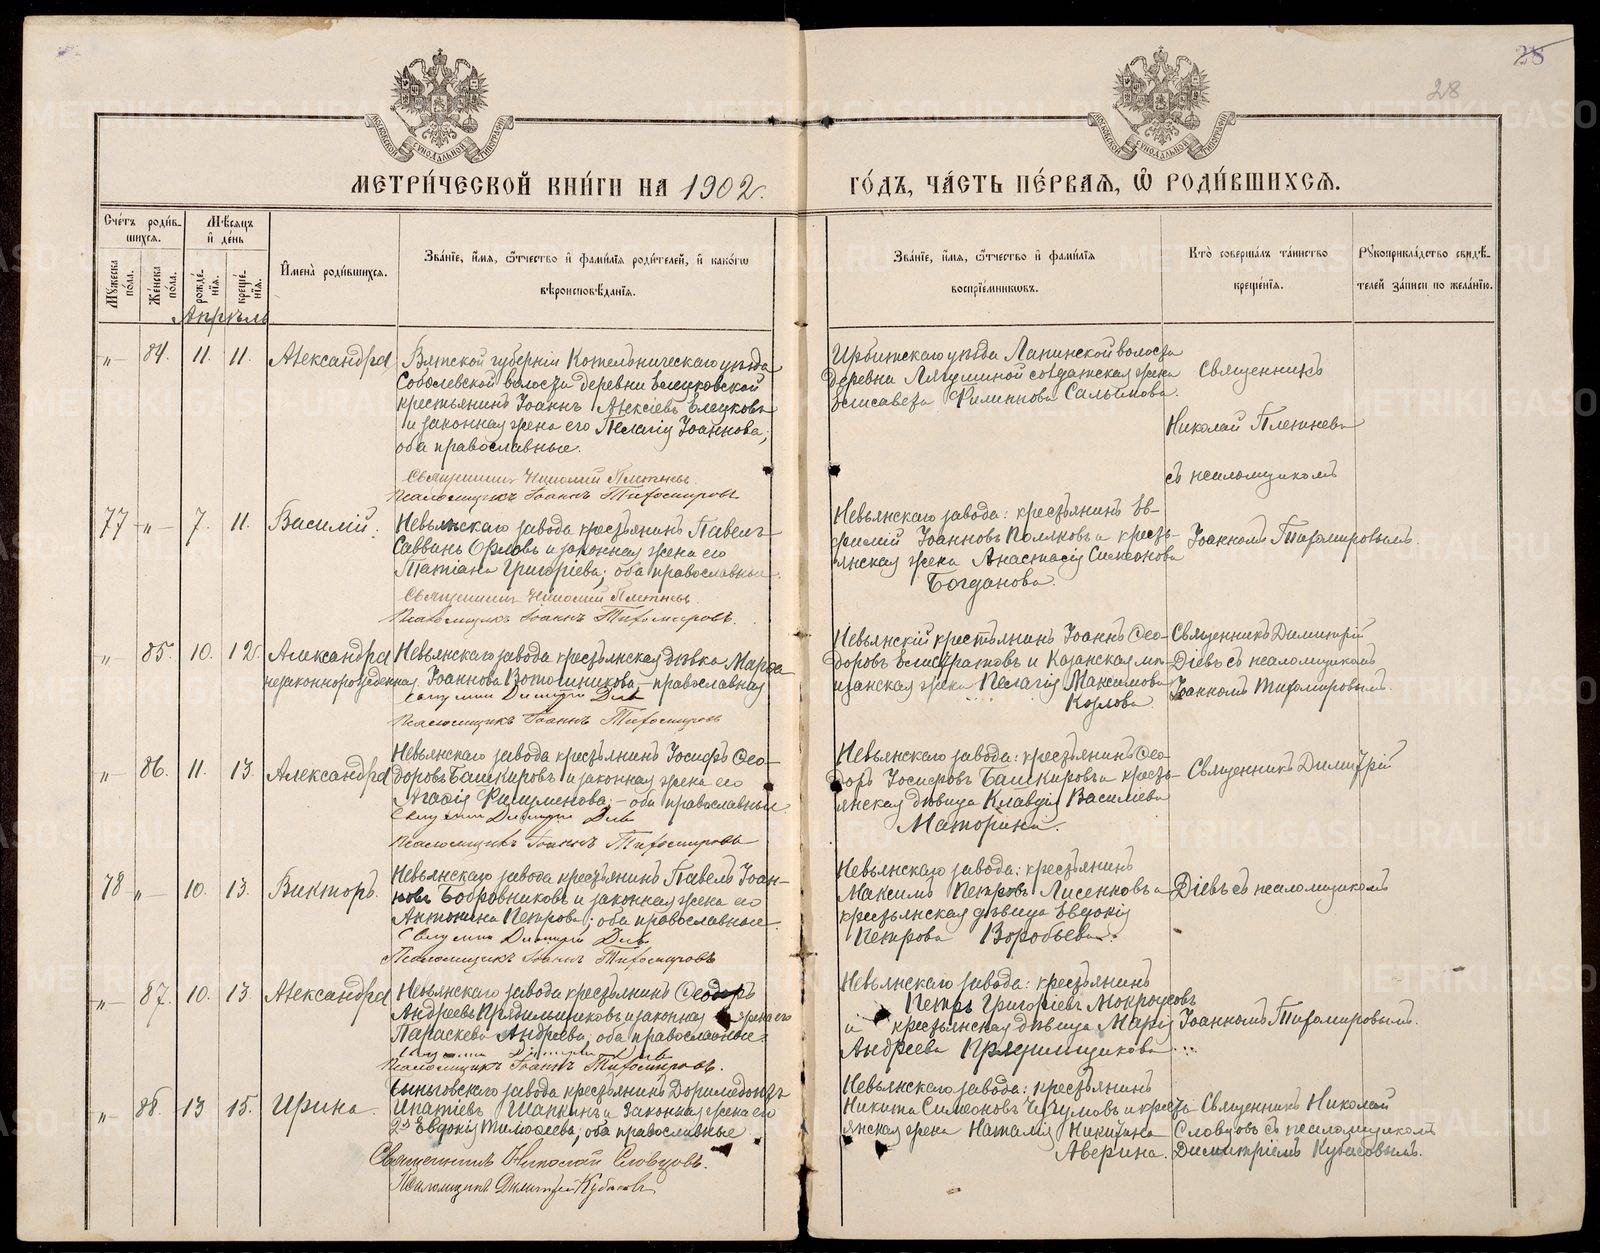 28
28
МЕТРИ́ЧЕСКОЙ КНИ́ГИ НА 1902.
ГО́ДЪ, ЧА́СТЬ ПЕ́РВАЯ, Ѡ҆ РОДИ́ВШИХСЯ.
Сче́тъ роди́вшихся.
Му́жеска по́ла.
Же́нска по́ла.
Мѣ́сяцъ и҆ де́нь
рожде́нїя.
креще́нїя.
И҆мена̀ роди́вшихся.
Зва́нїе, и҆́мя, ѻ҆́тчество и҆ фами́лїя роди́телей, и҆ како́гѡ
вѣроисповѣ́данїя.
Зва́нїе, и҆́мя, ѻ҆́тчество и҆ фами́лїя
воспрїе́мникѡвъ.
Кто̀ соверша́лъ та́инство
креще́нїя.
Рꙋкоприкла́дство свидѣ́телей за́писи по жела́нїю.
Апрѣль
„— 84. 11. 11. Александра
Вятской губернiи Котельническаго уѣзда
Соболевской волости деревни
крестьянинъ Iоаннъ Алексiевъ
и законная жена его Пелагiя Iоаннова,
оба православные.
Священникъ Николай Плетневъ
Псаломщикъ Iоаннъ Тихомировъ
Ирбитскаго уѣзда Лапинской волости
деревни Лягушиной солдатская жена
Елисавета Филиппова Сальникова.
Священникъ
Николай Плетневъ
съ псаломщикомъ
77 „— 7. 11. Василiй.
Невьянскаго завода крестьянинъ Павелъ
Саввинъ Орловъ и законная жена его
Татiана Григорiева; оба православные.
Священникъ Николай Плетневъ.
Псаломщикъ Iоаннъ Тихомировъ.
Невьянскаго завода: крестьянинъ Ев-
фимiй Iоанновъ Поляковъ и кресть-
янская жена Анастасiя Симеонова
Богданова.
Iоанномъ Тихомировымъ.
„— 85. 10. 12. Александра
незаконнорожденная
Невьянскаго завода крестьянская дѣвка Марѳа
Iоаннова Котошникова, — православная
Священникъ Димитрiй Дiевъ
Псаломщикъ Iоаннъ Тихомировъ
Невьянскiй крестьянинъ Iоаннъ Ѳео-
доровъ Елистратовъ и Казанская мѣ-
щанская жена Пелагiя Максимова
Козлова.
Священникъ Димитрiй
Дiевъ съ псаломщикомъ
Iоанномъ Тихомировымъ.
„— 86. 11. 13. Александра
Невьянскаго завода крестьянинъ Iосифъ Ѳео-
доровъ Башкировъ и законная жена его
Агафiя Филуменова, — оба православные
Священникъ Димитрiй Дiевъ
Псаломщикъ Iоаннъ Тихомировъ
Невьянскаго завода: крестьянинъ Ѳео-
доръ Iосифовъ Башкировъ и кресть-
янская дѣвица Клавдiя Василiева
Маторина.
Священникъ Димитрiй
78 „— 10. 13. Викторъ.
Невьянскаго завода крестьянинъ Павелъ Iоан-
новъ Бобровниковъ и законная жена его
Антонина Петрова; оба православные.
Священникъ Димитрiй Дiевъ
Псаломщикъ Iоаннъ Тихомировъ
Невьянскаго завода: крестьянинъ
Максимъ Петровъ Лисенковъ и
крестьянская дѣвица Евдокiя
Петрова Воробьева.
Дiевъ съ псаломщикомъ
„— 87. 10. 13 Александра
Невьянскаго завода крестьянинъ Ѳеодоръ
Андреевъ Прядильщиковъ и законная жена его
Параскева Андреева, оба православные.
Священникъ Димитрiй Дiевъ
Псаломщикъ Iоаннъ Тихомировъ.
Невьянскаго завода: крестьянинъ
Петръ Григорiевъ Мокроусовъ
и крестьянская дѣвица Марiя
Андреева Прядильщикова
Iоанномъ Тихомировымъ.
„— 88. 13 15. Ирина.
Быньговскаго завода крестьянинъ Доримедонтъ
Ипатiевъ Шапкинъ и законная жена его
Евдокiя Тимоѳеева; оба православные
Священникъ Николай Словцовъ.
Псаломщикъ Димитрiй Кубасовъ
Невьянскаго завода: крестьянинъ
Никита Симеоновъ Чигумовъ и кресть-
янская жена Наталiя Никитина
Аверина.
Священникъ Николай
Словцовъ съ псаломщикомъ
Димитрiемъ Кубасовымъ.